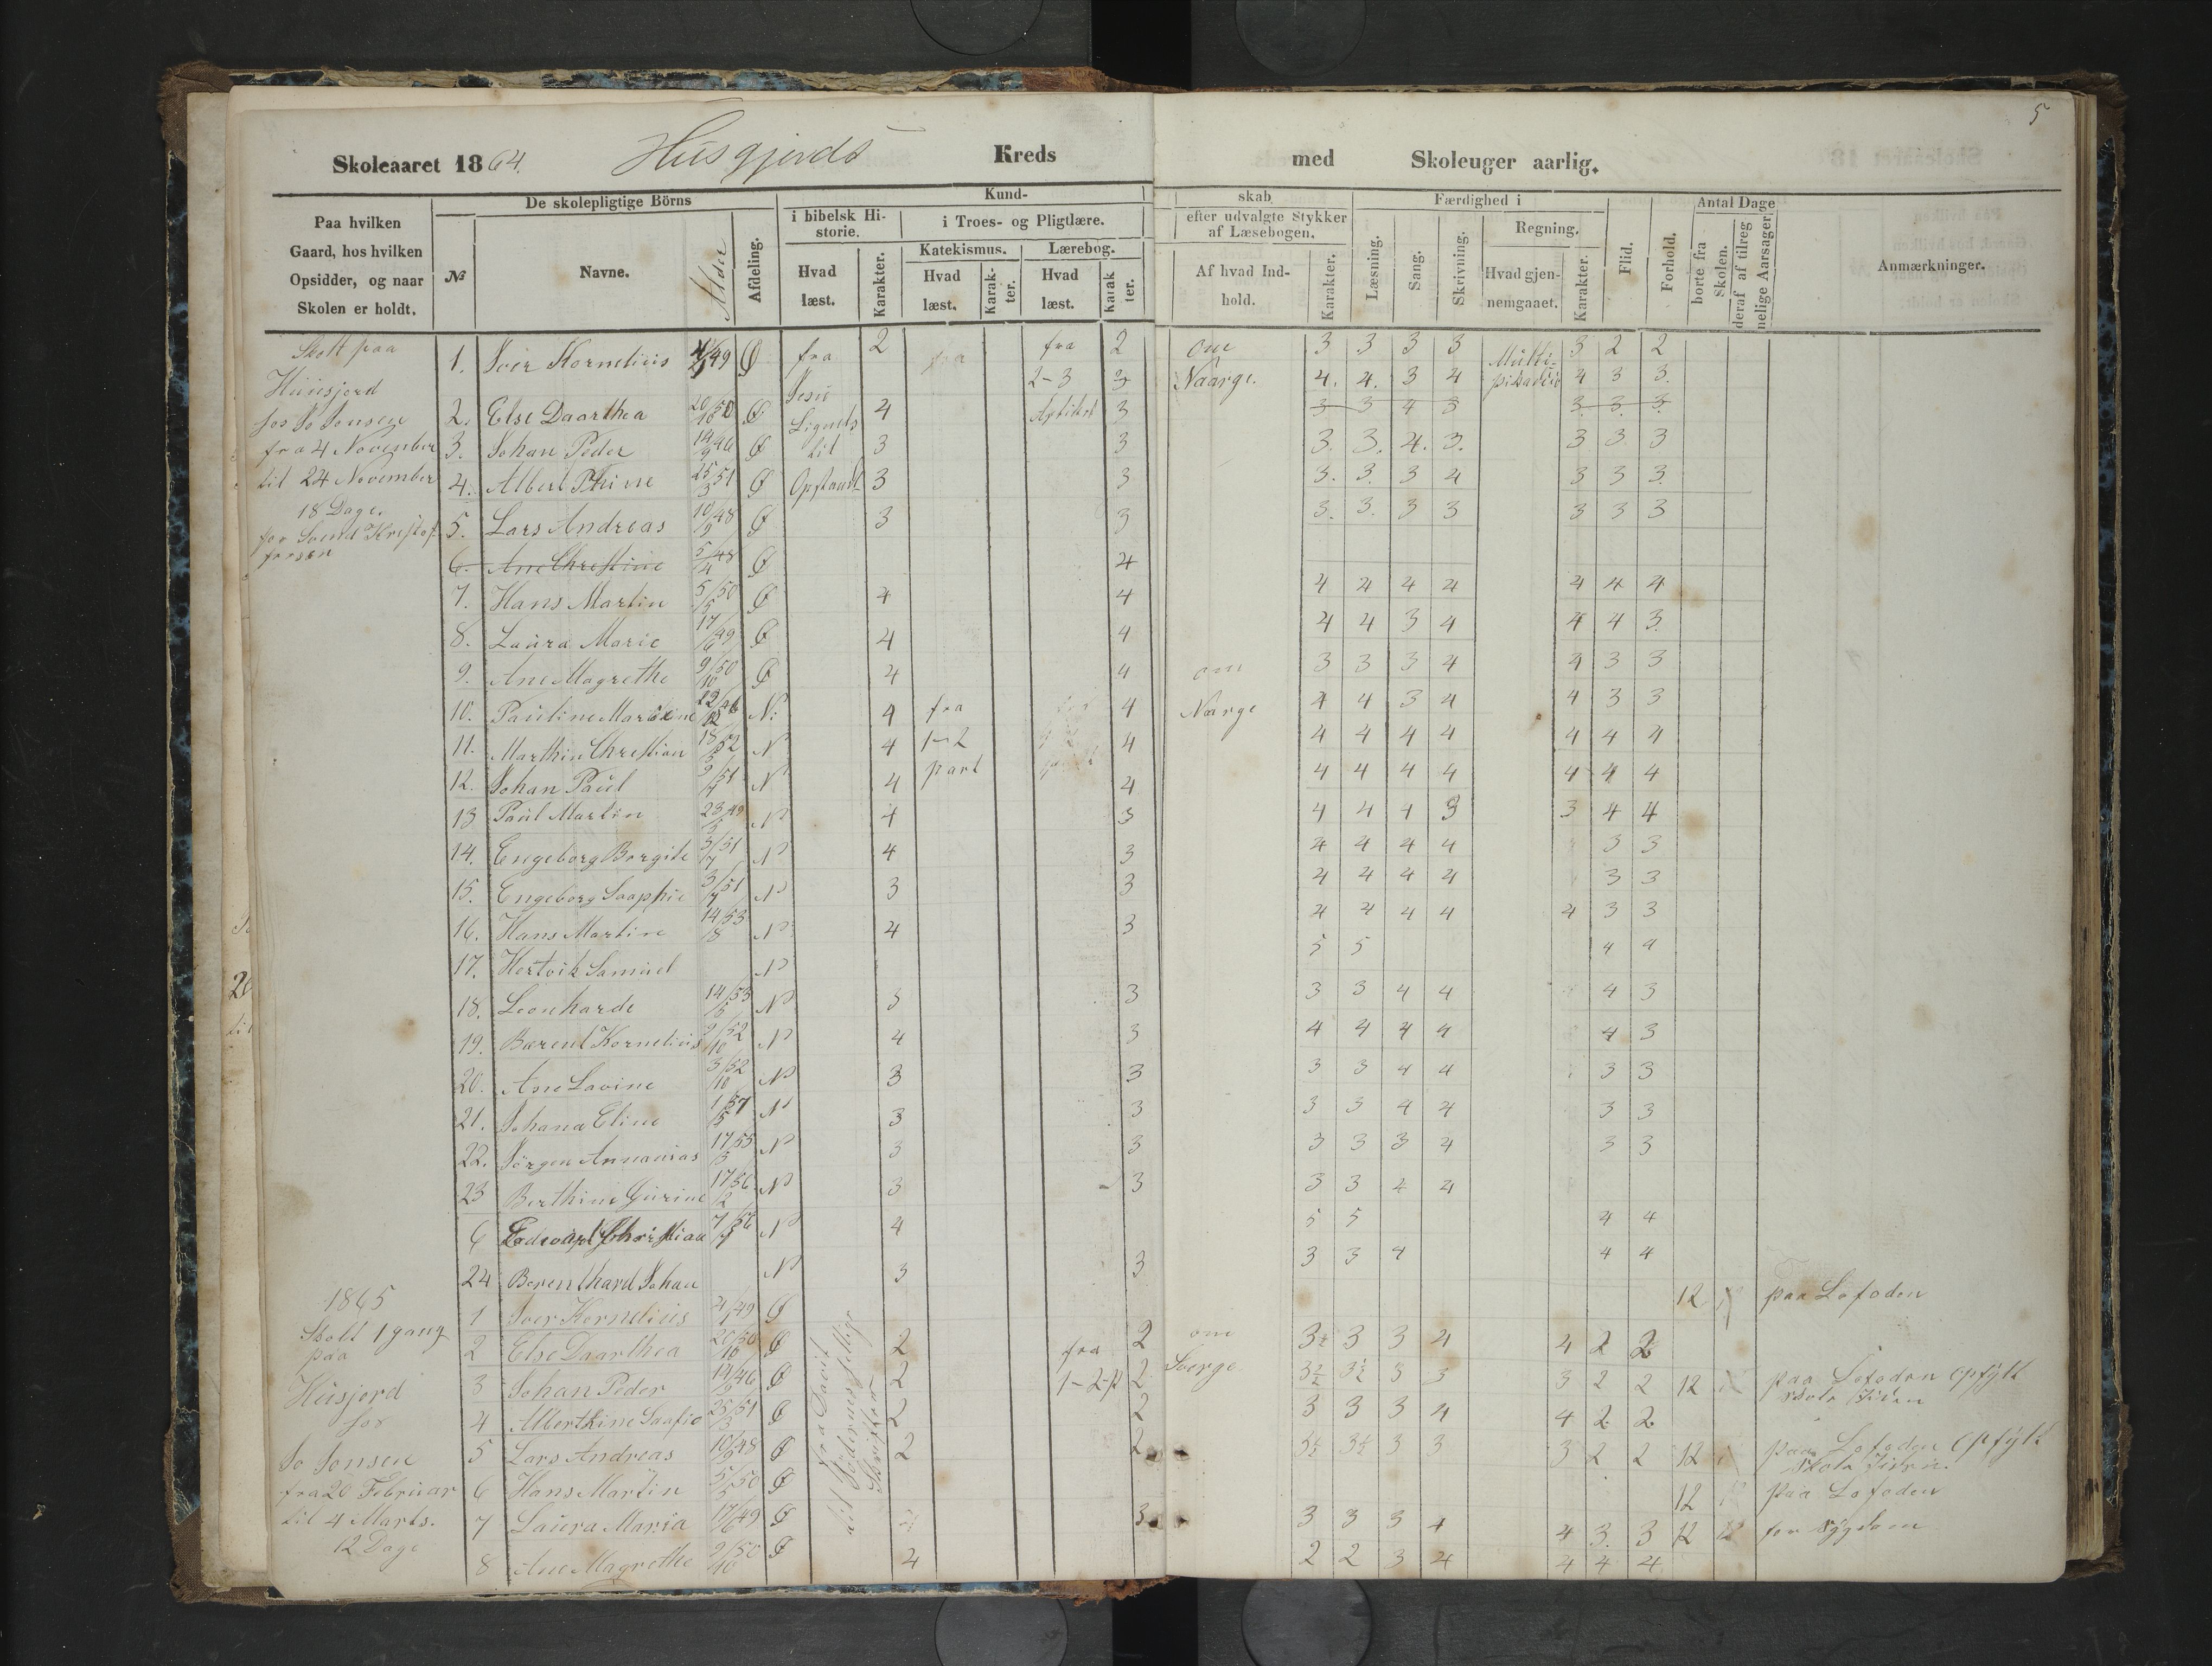 5
Skoleaaret 1864. Husgjerds Kreds med Skoleuger aarlig.
Paa hvilken Gaard, hos hvilken Opsidder, og naar Skolen er holdt.
De skolepligtige Börns
№ Navne. Alder Afdeling.
Kundskab
i bibelsk Historie. i Troes- og Pligtlære. efter udvalgte Stykker af Læsebogen.
Katekismus. Lærebog.
Hvad læst. Karakter. Hvad læst. Karakter. Hvad læst. Karakter. Af hvad Indhold. Karakter.
Færdighed i
Læsning. Sang. Skrivning. Regning. Hvad gjennemgaaet. Karakter.
Flid. Forhold.
Antal Dage
borte fra Skolen. deraf af tilregnelige Aarsager
Anmærkninger.
Skolt paa
Huusjord
hos Jo Jonsen
fra 4 November
til 24 November
18 Dage.
for Svend Kristof
fersen
fra
Jesu
Lignels
til
Opstand
fra
2-3
Artikel
om
Naarge.
Multi-
1. Iver Kornelius /49 Ø 2 2 3 3 3 3 3 2 2
4. 4. 3 4 4 3 3.
2. Else Daarthea 20/10 50 Ø 4 3 3 3 4 3 3. 3. 3.
3. Johan Peder 14/9 46 Ø 3 3 3. 3. 4. 3. 3 3 3
4. Albertine 25/3 51 Ø 3 3 3. 3. 3 4 3 3 3.
5. Lars Andreas 10/9 48 Ø 3 3 3. 3. 3 3 3 3 3
6. Ane Chrestine 5/4 48 Ø 4
7. Hans Martin 5/5 50 Ø 4 4 4 4 4 4 4 4 4
8. Laura Marie 17/6 49 Ø 4 4 4 4 3 4 4 4 3.
9. Ane Magrethe 9/10 50 Ø 4 4 om 3 3 3 4 4 3 3
10. Pauline N. 4 fra 4 Narge 4 4 3 4 4 3 3
11. Marthin Chrestian 18/5 52 N 4 1-2 4 4 4 4 4 4 4 4
12. Johan Paul N 4 part 4 4 4 4 4 4 4 4
13 Paul Martin 23/5 49 N 4 3 4 4 4 3 3 4 4
14. Engeborg Borgite 5/7 51 N 4 3 4 4 4 4 3 3
15. Engeborg Saaphie 3/7 51 N 3 3 4 4 4 4 3 3
16. Hans Martin 14/8 53 N 4 3 4 4 4 4 4 3 3
17. Hertvik Samuel N 5 5 4 4
18. Leonharde 14/5 53 N 3 3 3 3 4 4 4 3
19. Bærent Kornelius 2/10 52 N 4 3 4 4 4 4 4 3
20. Ane Lavine 3/10 52 N 3 3 3 3 4 4 3 3
21. Johana Eline N 3 3 3 3 4 4 3 3
22. Jörgen 17/5 55 N 3 3 3 3 3 4 3 3
23 Berthine Gurine 17/2 56 N 3 3 3 3 4 4
6 Edvart Christian N 4 5 5 4 4
24 Berenthard Johan N 3 3 3 3 4 4 4
1865
Skolt 1 gang
paa
Husjord
hos
Jo Jonsen
fra 20 Februar
til 4 Marts.
12 Dage
Fra David
til Jödernes
Skrifter
fra
1-2-P
om
Sverge
1 Iver Kornelius 4/1 49 Ø 12 paa Lofoden
2 Else Daarthea 20/10 50 Ø 2 2 3½ 3 3 4 4 2 2
3 Johan Peder 14/9 46 Ø 2 2 3½ 3½ 3 3 3 2 2 12 paa Lofoden opfylt
4 Alberthine Saafie 25/3 51 Ø 2 2 3 3 3 4 4 2 2
5 Lars Andreas 10/9 48 Ø 2 2 3½ 3½ 3 3 3 2 2 12 paa Lofoden opfylt
6 Hans Martin 5/5 50 Ø 12 paa Lofoden
7 Laura Maria 17/6 49 Ø 3 3 3 3 4 4 3. 3 12 12 for sygdom
8 Ane Magrethe 9/10 50 Ø 4 2 2 3 4 4 4 4